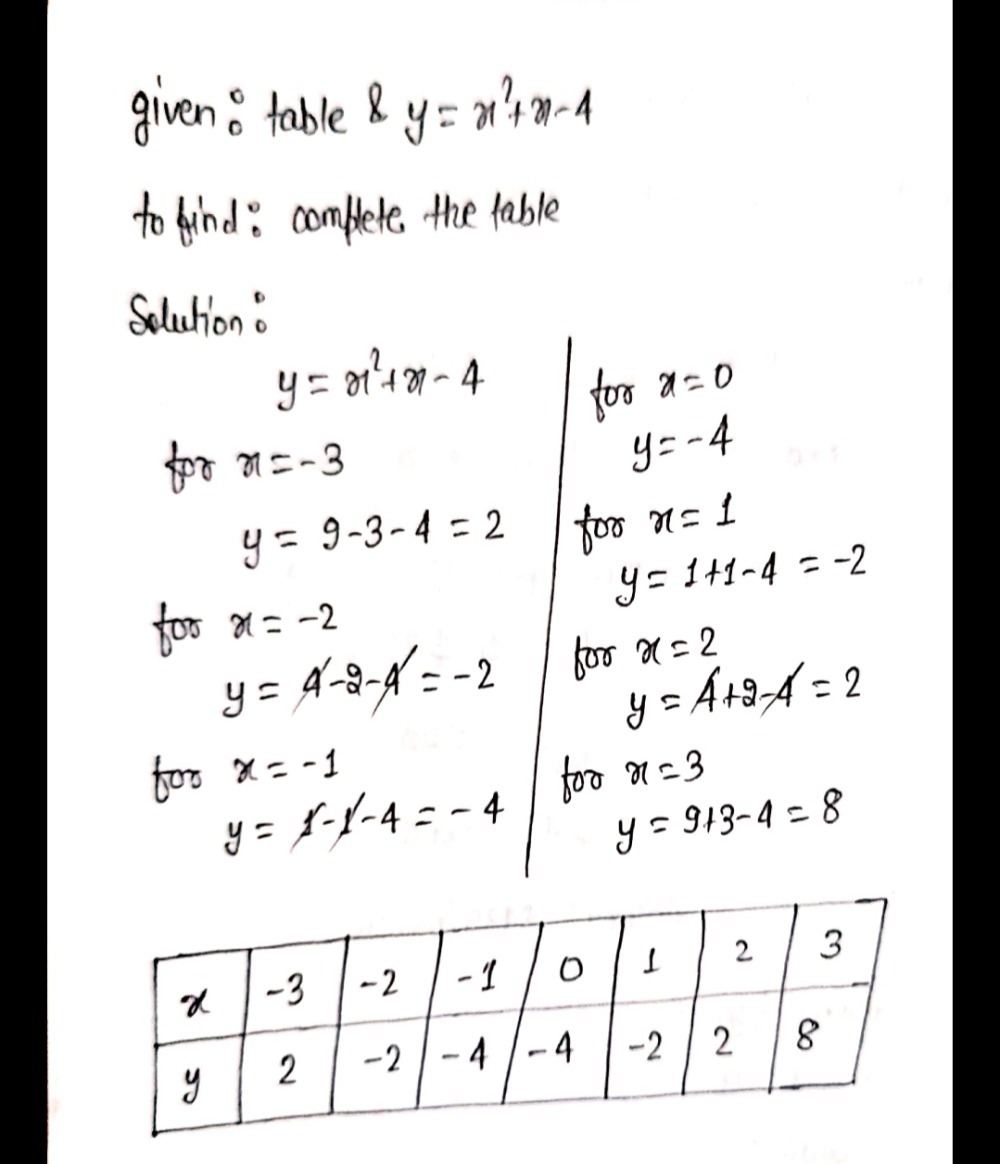 given: table & y = x²+x-4
to find: complete the table
Solution:
y = x²+x-4
for x = -3
y = 9-3-4 = 2
for x = -2
y = 4-2-4 = -2
for x = -1
y = 1-1-4 = -4
for x = 0
y = -4
for x = 1
y = 1+1-4 = -2
for x = 2
y = 4+2-4 = 2
for x = 3
y = 9+3-4 = 8
x -3 -2 -1 0 1 2 3
y 2 -2 -4 -4 -2 2 8